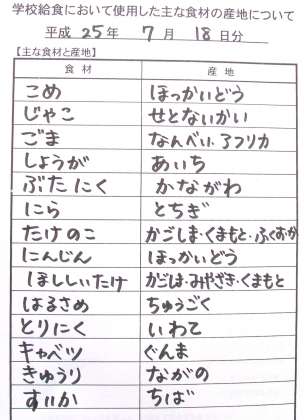 学校給食において使用した主な食材の産地について
平成 25 年 7 月 18 日分
【主な食材と産地】
食材 産地
こめ ほっかいどう
じゃこ せとないかい
ごま なんべい、アフリカ
しょうが あいち
ぶたにく かながわ
にら とちぎ
たけのこ かごしま・くまもと・ふくおか
にんじん ほっかいどう
ほししいたけ かごしま・みやざき・くまもと
はるさめ ちゅうごく
とりにく いわて
キャベツ ぐんま
きゅうり ながの
すいか ちば